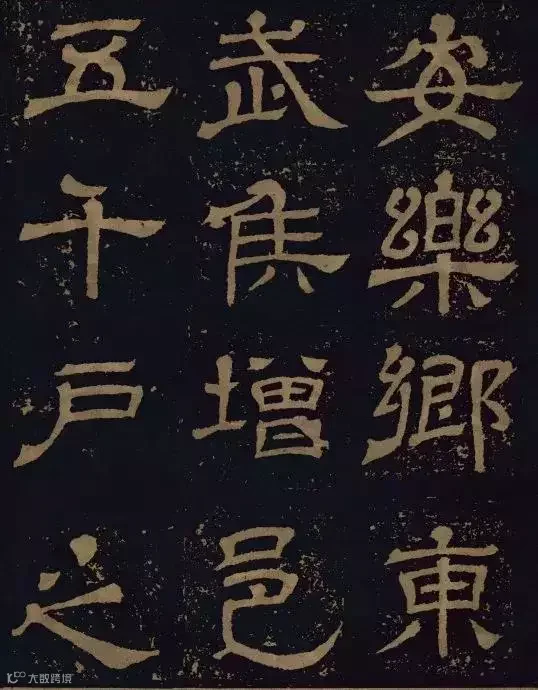 安樂鄉東
武侯增邑
五千戶之
大数跨境